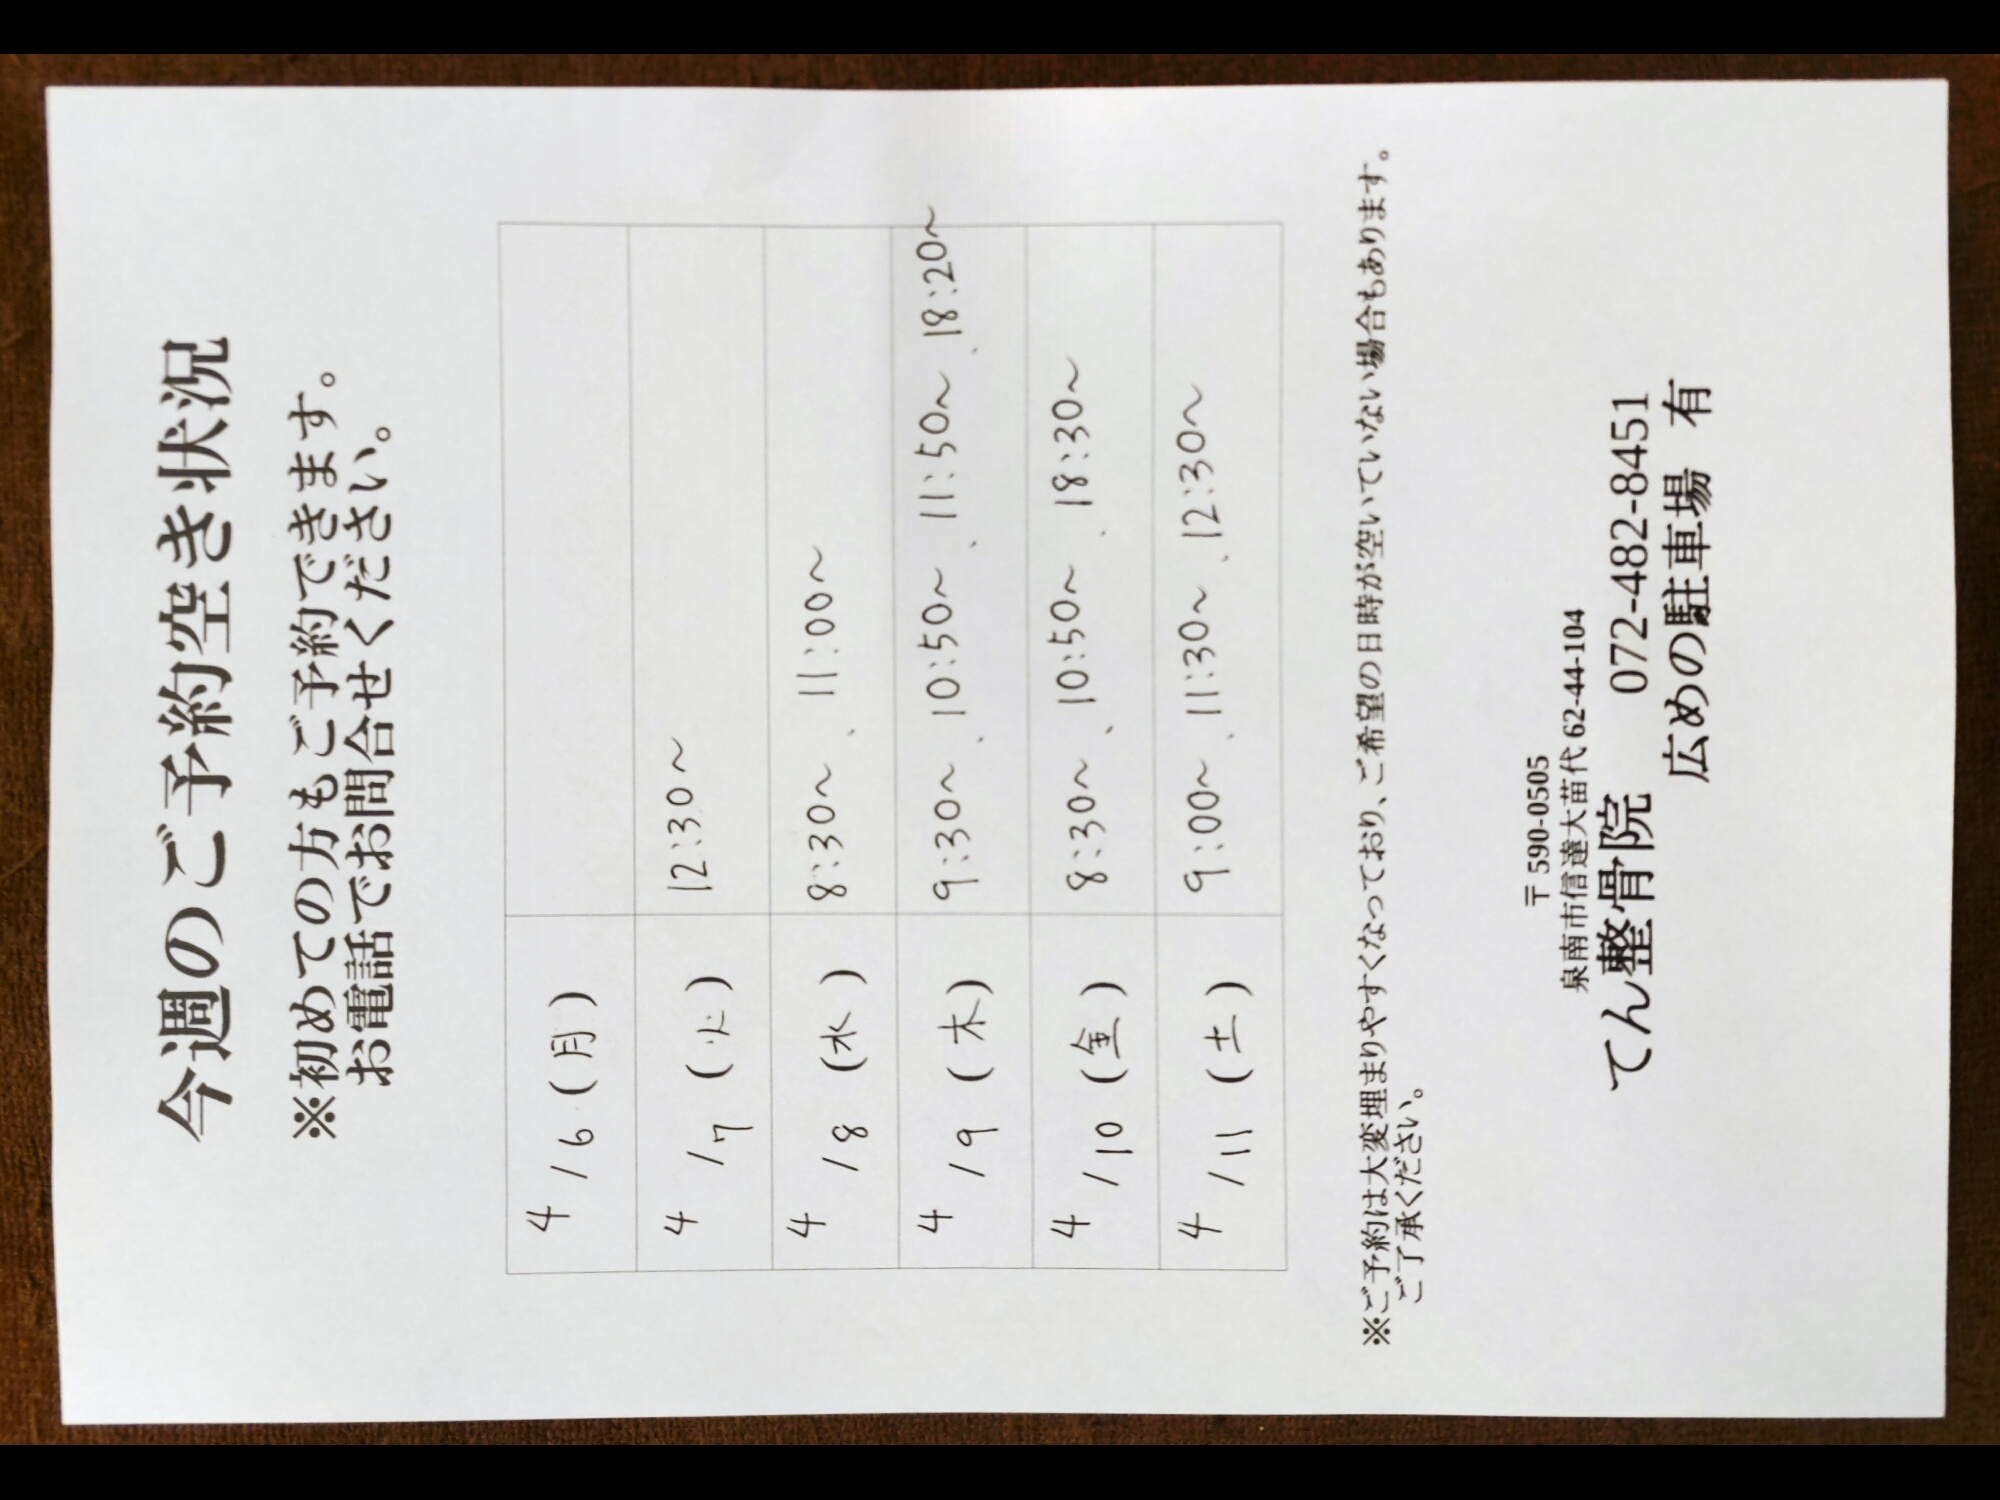 今週のご予約空き状況
※初めての方もご予約できます。
お電話でお問合せください。
4/6(月)
4/7(火) 12:30～
4/8(水) 8:30～、11:00～
4/9(木) 9:30～、10:50～、11:50～、18:20～
4/10(金) 8:30～、10:50～、18:30～
4/11(土) 9:00～、11:30～、12:30～
※ご予約は大変埋まりやすくなっており、ご希望の日時が空いていない場合もあります。
ご了承ください。
〒590-0505
泉南市信達大苗代 62-44-104
てん整骨院 072-482-8451
広めの駐車場 有